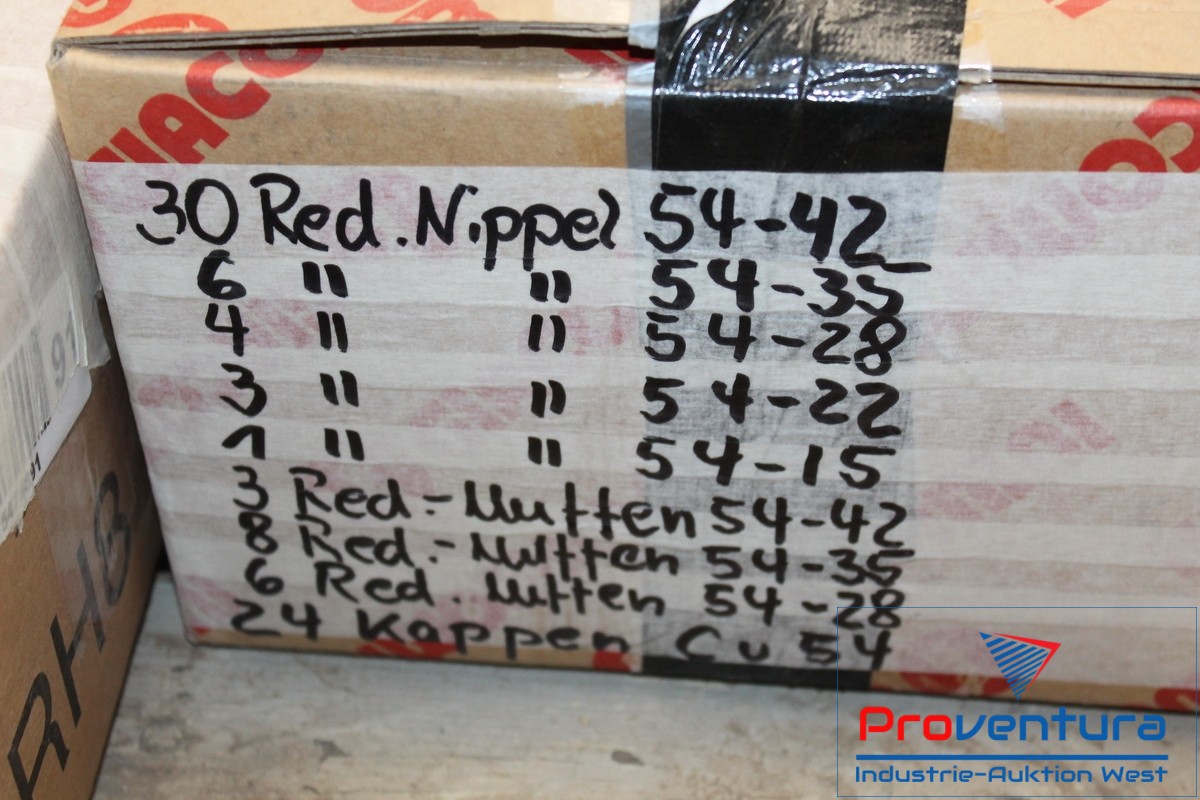 30 Red. Nippel 54-42
6 " " 54-35
4 " " 54-28
3 " " 54-22
1 " " 54-15
3 Red.-Mutten 54-42
8 Red.-Mutten 54-35
6 Red. Mutten 54-28
24 Kappen Cu 54
RHB
91
91
Proventura
Industrie-Auktion West